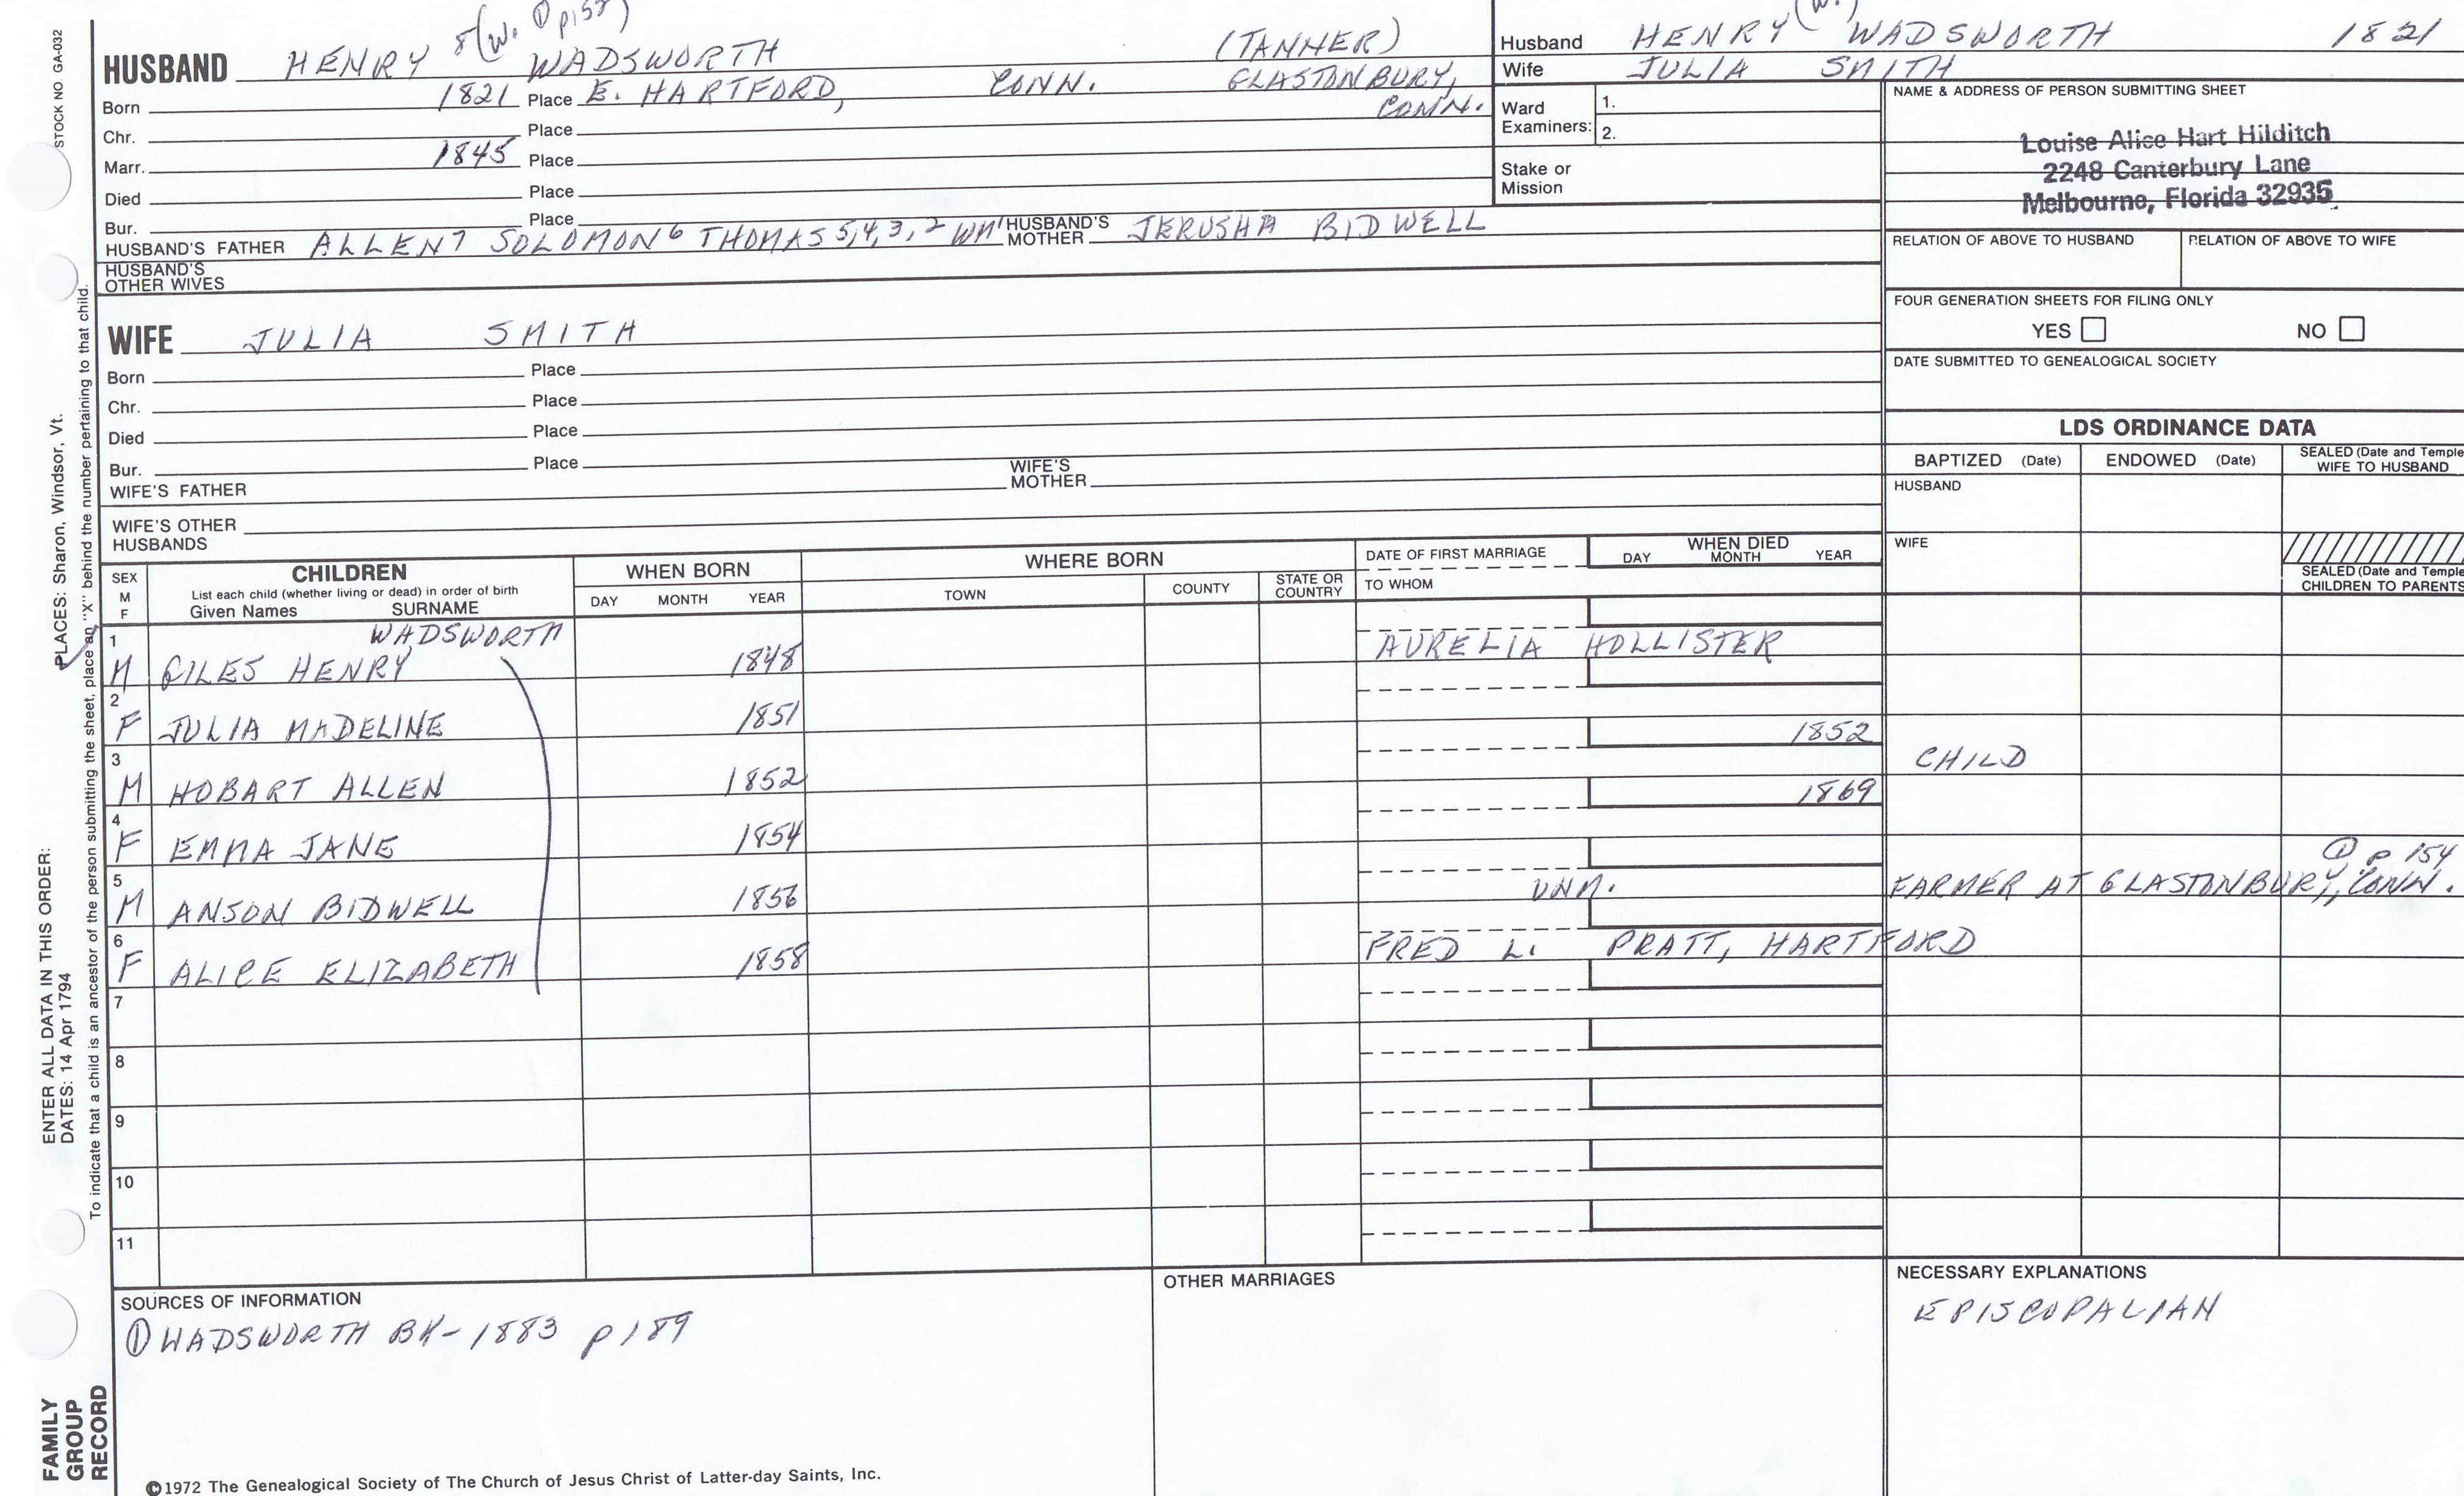 STOCK NO. GA-032
8(W. ① p152)
HUSBAND HENRY WADSWORTH (TANNER)
Born 1821 Place E. HARTFORD, CONN. GLASTONBURY, CONN.
Chr. Place
Marr. 1845 Place
Died Place
Bur. Place
HUSBAND'S FATHER ALLEN 7 SOLOMON 6 THOMAS 5,4,3,2 WM 1 HUSBAND'S MOTHER JERUSHA BIDWELL
HUSBAND'S OTHER WIVES
Husband HENRY (W.) WADSWORTH 1821
Wife JULIA SMITH
Ward Examiners: 1.
2.
Stake or Mission
NAME & ADDRESS OF PERSON SUBMITTING SHEET
Louise Alice Hart Hilditch
2248 Canterbury Lane
Melbourne, Florida 32935
RELATION OF ABOVE TO HUSBAND RELATION OF ABOVE TO WIFE
FOUR GENERATION SHEETS FOR FILING ONLY
YES NO
DATE SUBMITTED TO GENEALOGICAL SOCIETY
WIFE JULIA SMITH
Born Place
Chr. Place
Died Place
Bur. Place
WIFE'S FATHER WIFE'S MOTHER
WIFE'S OTHER HUSBANDS
LDS ORDINANCE DATA
BAPTIZED (Date) ENDOWED (Date) SEALED (Date and Temple
WIFE TO HUSBAND
HUSBAND
WIFE
SEALED (Date and Temple
CHILDREN TO PARENTS
SEX M F CHILDREN WHEN BORN WHERE BORN DATE OF FIRST MARRIAGE WHEN DIED
List each child (whether living or dead) in order of birth
Given Names SURNAME DAY MONTH YEAR TOWN COUNTY STATE OR COUNTRY TO WHOM DAY MONTH YEAR
WADSWORTH
1 M GILES HENRY 1848 AURELIA HOLLISTER
2 F JULIA MADELINE 1851 1852 CHILD
3 M HOBART ALLEN 1852 1869
4 F EMMA JANE 1854
① p 154
5 M ANSON BIDWELL 1856 UNM. FARMER AT GLASTONBURY, CONN.
6 F ALICE ELIZABETH 1858 FRED L. PRATT, HARTFORD
7
8
9
10
11
SOURCES OF INFORMATION
① WADSWORTH BK-1883 p189
OTHER MARRIAGES
NECESSARY EXPLANATIONS
EPISCOPALIAN
©1972 The Genealogical Society of The Church of Jesus Christ of Latter-day Saints, Inc.
FAMILY
GROUP
RECORD
ENTER ALL DATA IN THIS ORDER:
DATES: 14 Apr 1794
PLACES: Sharon, Windsor, Vt.
To indicate that a child is an ancestor of the person submitting the sheet, place an "X" behind the number pertaining to that child.